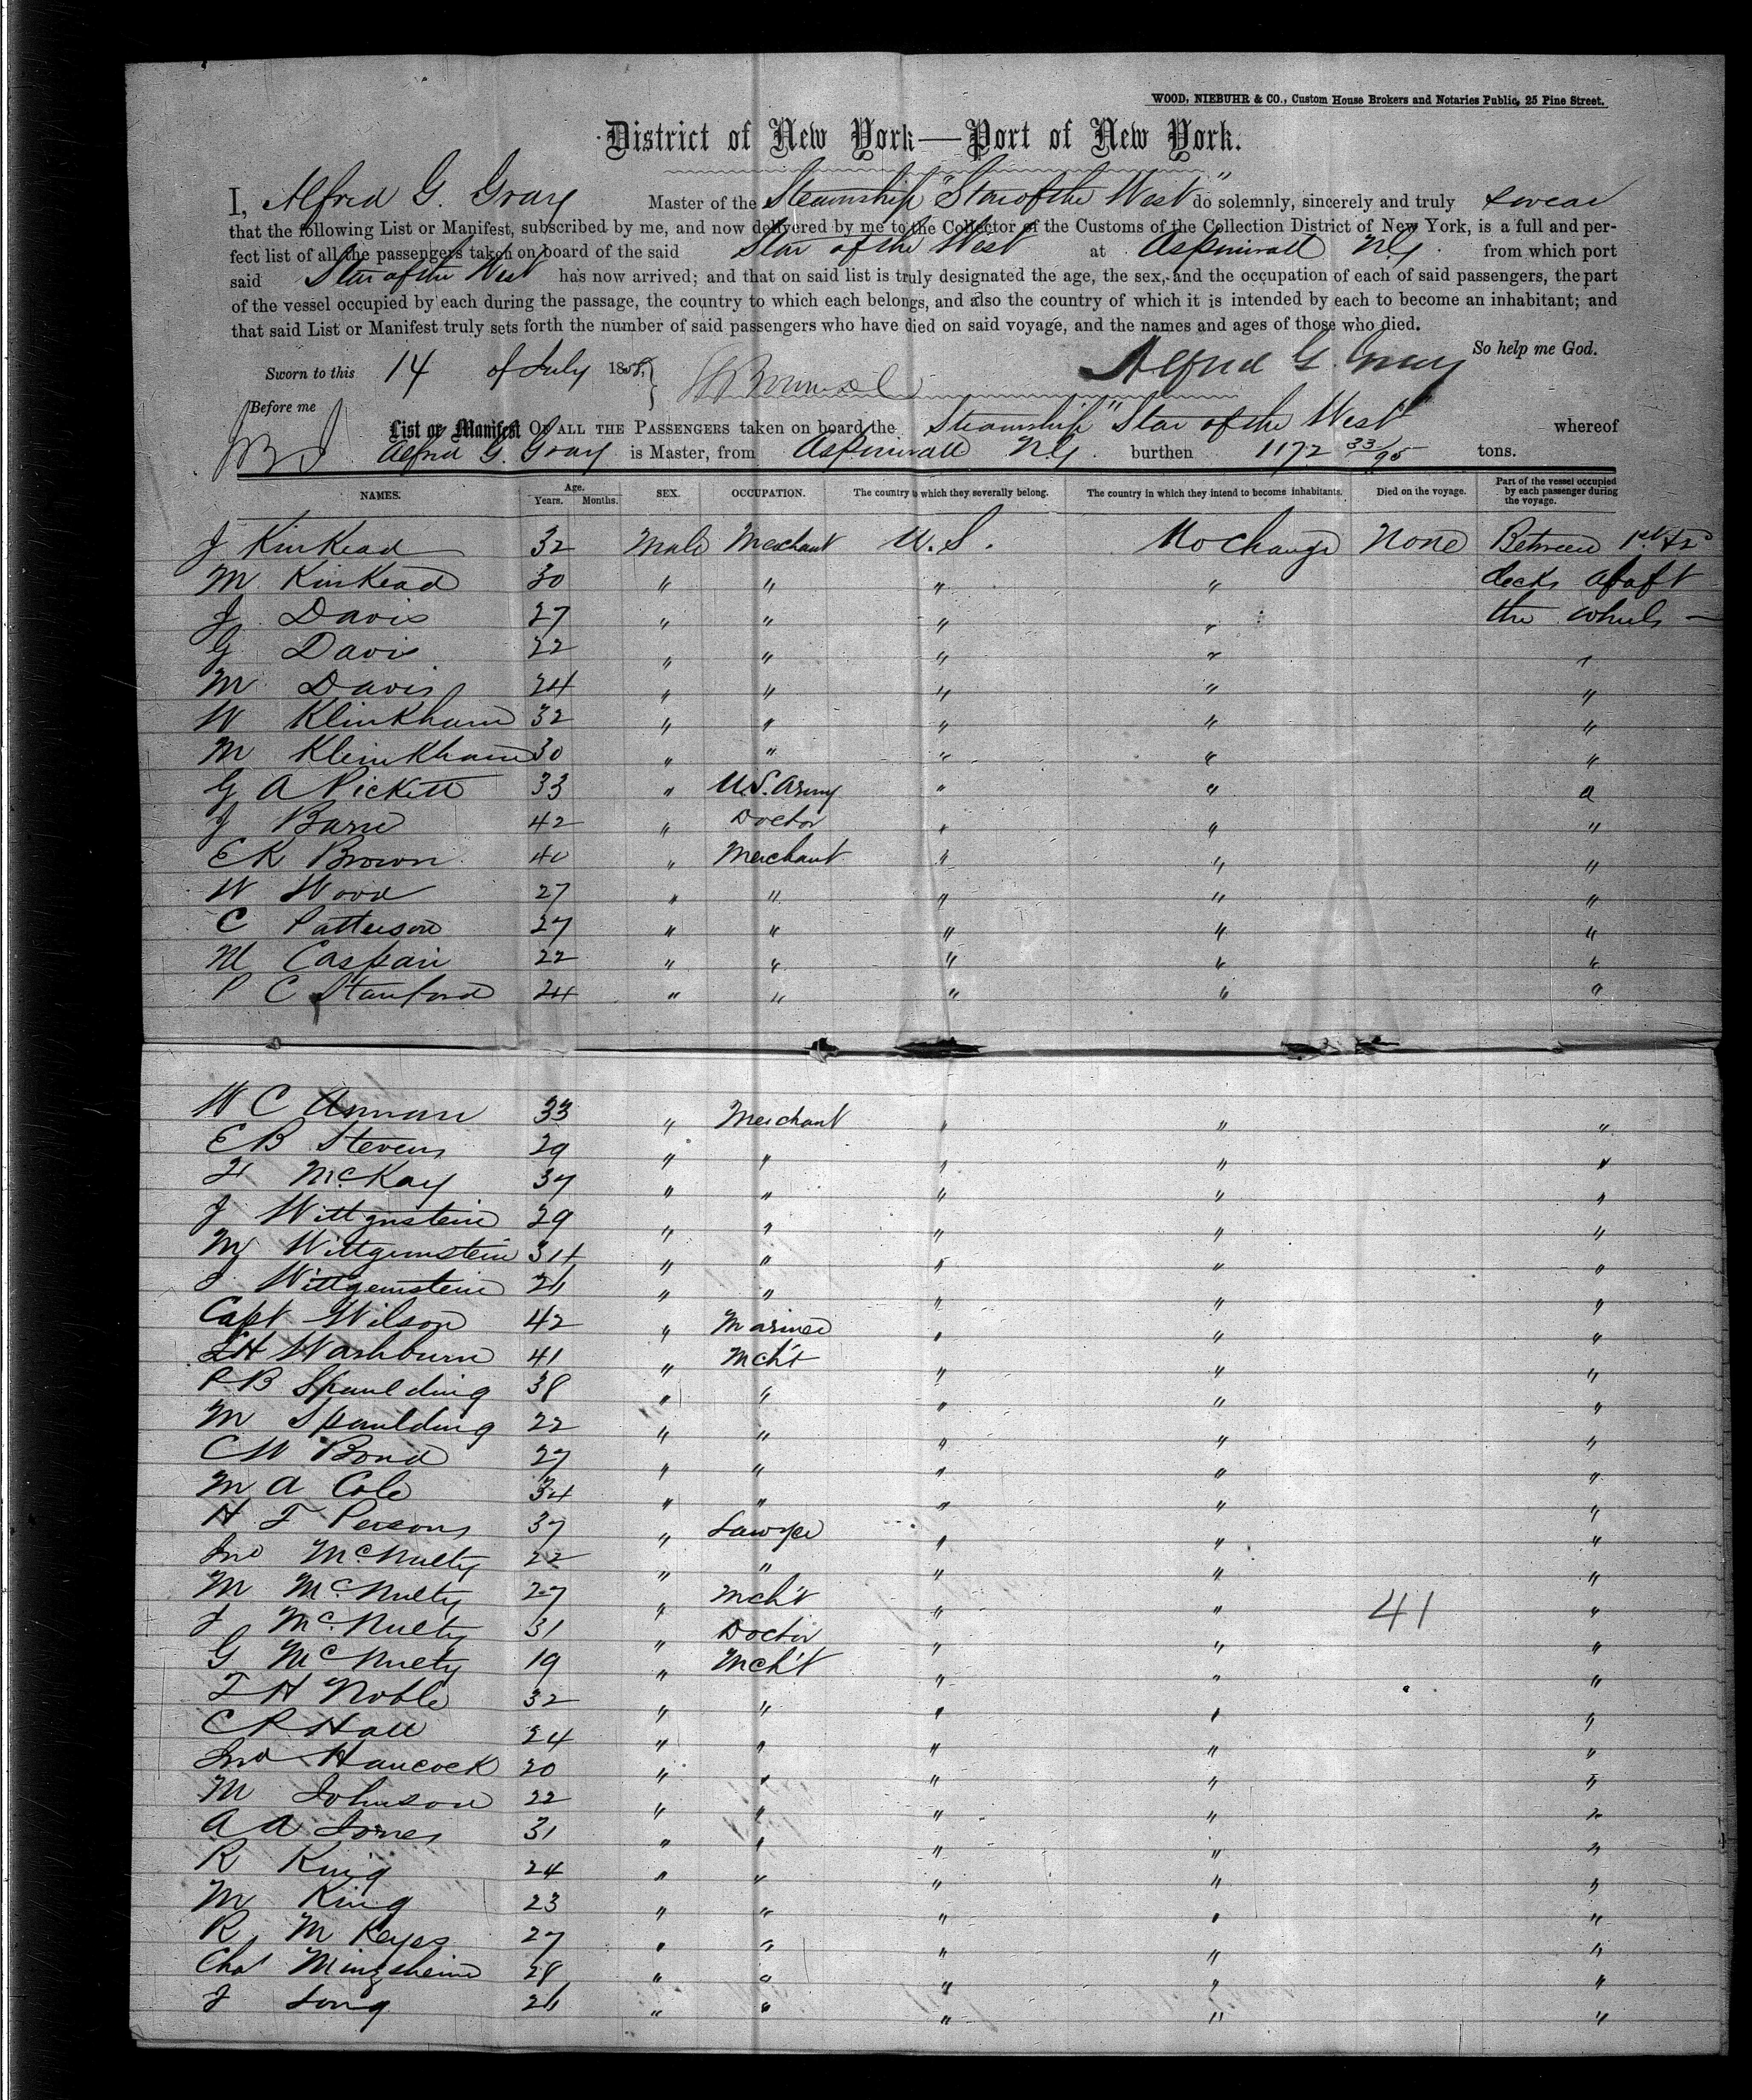 WOOD, NIEBUHR & CO., Custom House Brokers and Notaries Public, 25 Pine Street.
District of New York—Port of New York.
I, Alfred G. Gray Master of the Steamship "Star of the West" do solemnly, sincerely and truly swear
that the following List or Manifest, subscribed by me, and now delivered by me to the Collector of the Customs of the Collection District of New York, is a full and per-
fect list of all the passengers taken on board of the said Star of the West at Aspinwall N.G. from which port
said Star of the West has now arrived; and that on said list is truly designated the age, the sex, and the occupation of each of said passengers, the part
of the vessel occupied by each during the passage, the country to which each belongs, and also the country of which it is intended by each to become an inhabitant; and
that said List or Manifest truly sets forth the number of said passengers who have died on said voyage, and the names and ages of those who died.
So help me God.
Sworn to this 14 of July 1858, Alfred G. Gray
Before me
List or Manifest OF ALL THE PASSENGERS taken on board the Steamship "Star of the West" whereof
Alfred G. Gray is Master, from Aspinwall N.G. burthen 1172 33/95 tons.
NAMES. Age. Years. Months. SEX. OCCUPATION. The country to which they severally belong. The country in which they intend to become inhabitants. Died on the voyage. Part of the vessel occupied by each passenger during the voyage.
J Kinkead 32 Male Merchant U.S. No change None Between 1st & 2d
M Kinkead 30 " " " " decks abaft
J Davis 27 " " " " the wheels —
G Davis 22 " " " " "
M Davis 24 " " " " "
W Klinkham 32 " " " " "
M Kleinkham 30 " " " " "
G A Pickett 33 " U.S. Army " " "
J Barre 42 " Doctor " " "
E K Brown 40 " Merchant " " "
W Wood 27 " " " " "
C Patterson 27 " " " " "
M Caspari 22 " " " " "
P C Stanford 24 " " " " "
W C Annan 33 " Merchant " " "
E B Stevens 29 " " " " "
H McKay 37 " " " " "
J Wittgnstein 29 " " " " "
M Wittgenstein 34 " " " " "
J Wittgenstein 26 " " " " "
Capt Wilson 42 " Mariner " " "
L H Washburn 41 " Mcht " " "
P B Spaulding 38 " " " " "
M Spaulding 22 " " " " "
C W Bond 27 " " " " "
M A Cole 34 " " " " "
H F Persons 37 " Lawyer " " "
Jno McNulty 22 " " " " "
M McNulty 27 " Mch't " " 41 "
J McNulty 31 " Doctor " " "
G McNulty 19 " Mch't " " "
T H Noble 32 " " " " "
C R Hall 24 " " " " "
Jno Hancock 20 " " " " "
M Johnson 22 " " " " "
A A Jones 31 " " " " "
R King 24 " " " " "
M King 23 " " " " "
R M Keyes 27 " " " " "
Chas Mingsheim 28 " " " " "
J Long 26 " " " " "